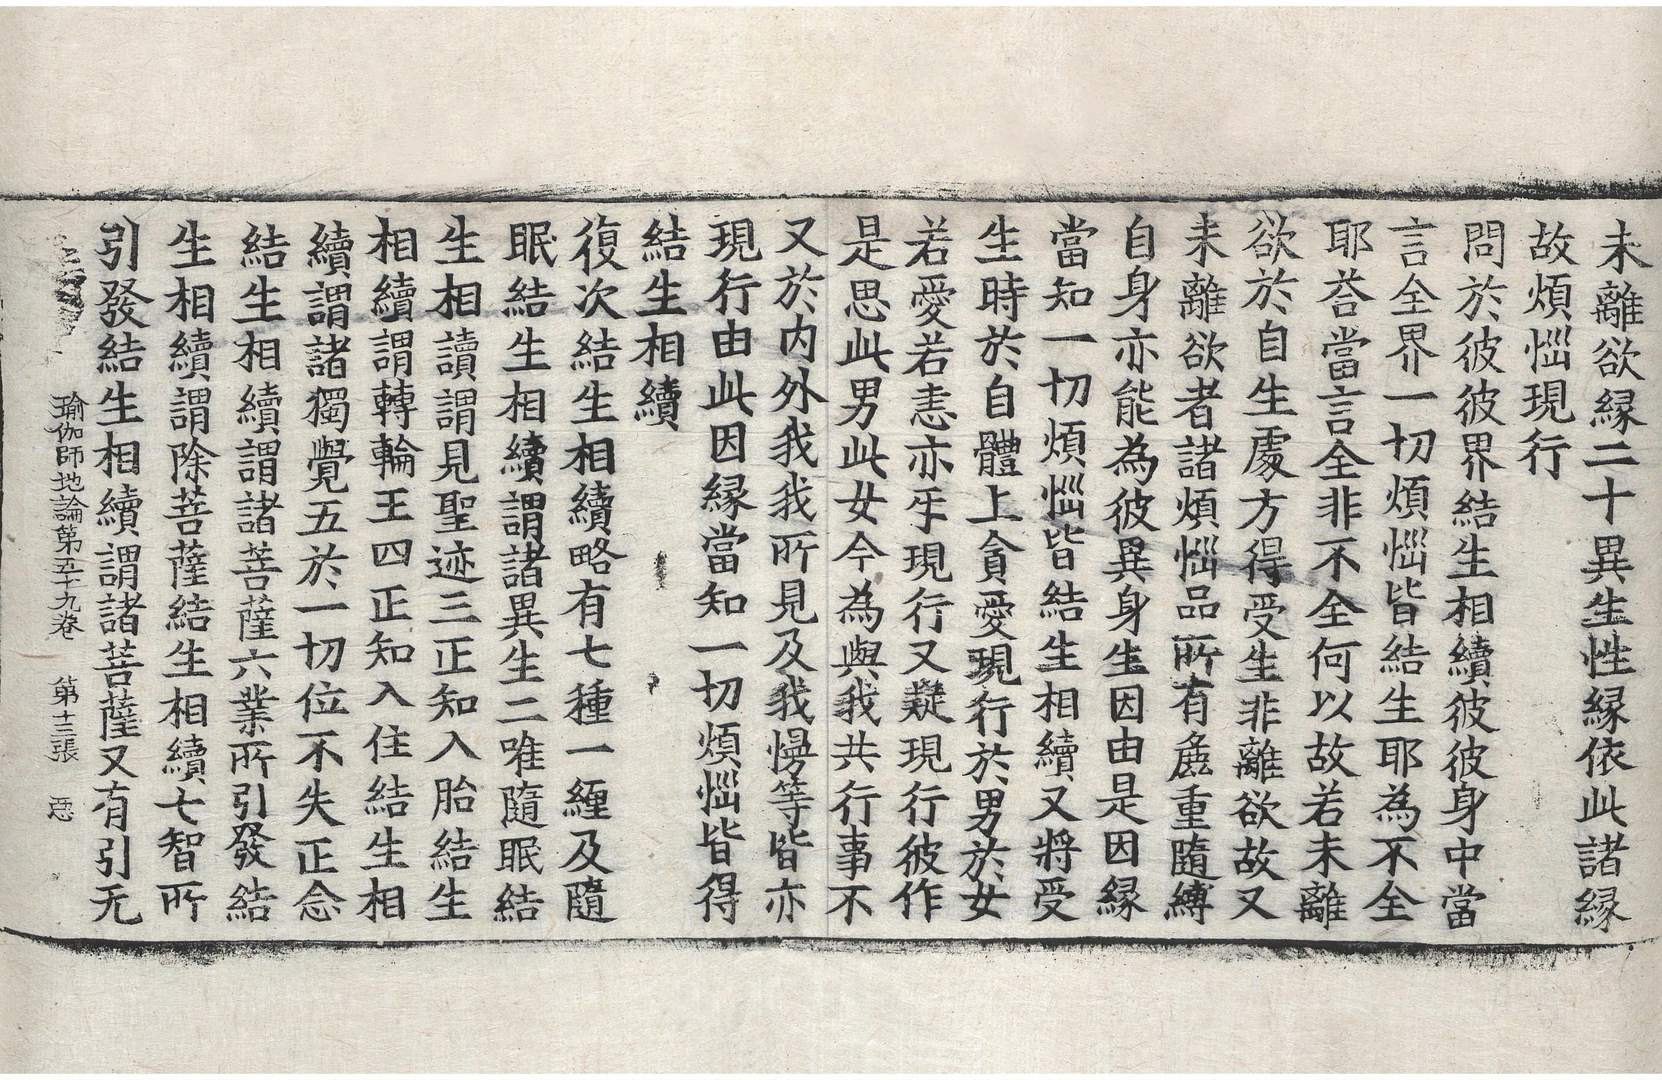 未離欲縁二十異生性縁依此諸縁
故煩惱現行
問於彼彼界結生相續彼彼身中當
言全界一切煩惱皆結生耶為不全
耶荅當言全非不全何以故若未離
欲於自生處方得受生非離欲故又
未離欲者諸煩惱品所有麁重隨縛
自身亦能為彼異身生因由是因縁
當知一切煩惱皆結生相續又將受
生時於自體上貪愛現行於男於女
若愛若恚亦互現行又疑現行彼作
是思此男此女今為與我共行事不
又於内外我我所見及我慢等皆亦
現行由此因縁當知一切煩惱皆得
結生相續
復次結生相續略有七種一纏及隨
眠結生相續謂諸異生二唯隨眠結
生相讀謂見聖迹三正知入胎結生
相續謂轉輪王四正知入住結生相
續謂諸獨覺五於一切位不失正念
結生相續謂諸菩薩六業所引發結
生相續謂除菩薩結生相續七智所
引發結生相續謂諸菩薩又有引无
瑜伽師地論第五十九卷 第十三張 惡